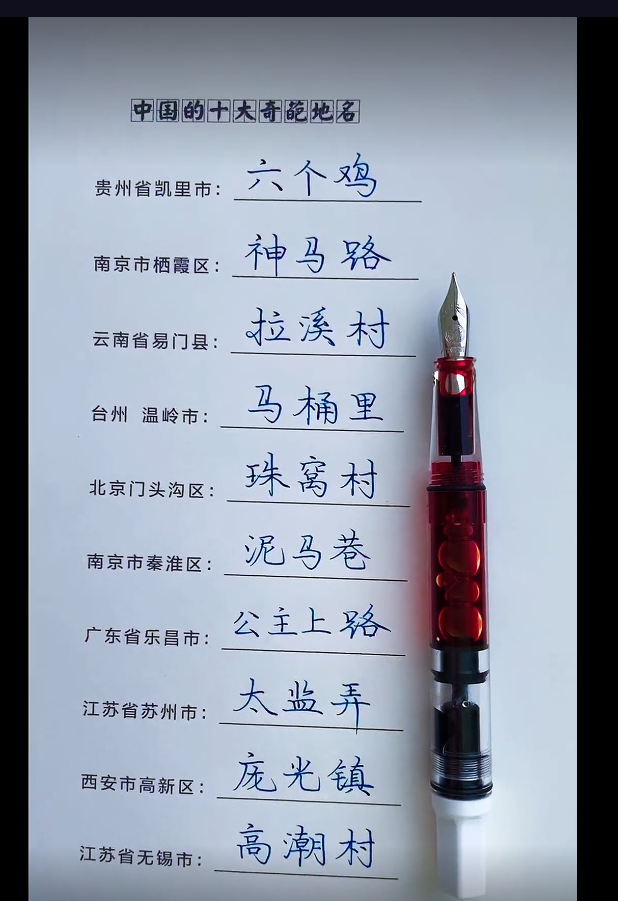 中国的十大奇葩地名
贵州省凯里市：六个鸡
南京市栖霞区：神马路
云南省易门县：拉溪村
台州 温岭市：马桶里
北京门头沟区：珠窝村
南京市秦淮区：泥马巷
广东省乐昌市：公主上路
江苏省苏州市：太监弄
西安市高新区：庞光镇
江苏省无锡市：高潮村